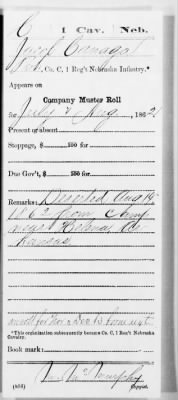 C 1 Cav. Neb.
Jacob
Pvt., Co. C, 1 Reg't Nebraska Infantry.*
Appears on
Company Muster Roll
for July & Aug, 1862.
Present or absent
Stoppage, $ 100 for
Due Gov't, $ 100 for
Remarks: Deserted Aug 19
1862 from Camp
near Helena Ar-
kansas
*This organization subsequently became Co. C, 1 Reg't Nebraska
Cavalry.
Book mark:
(858) Murphy
Copyist.